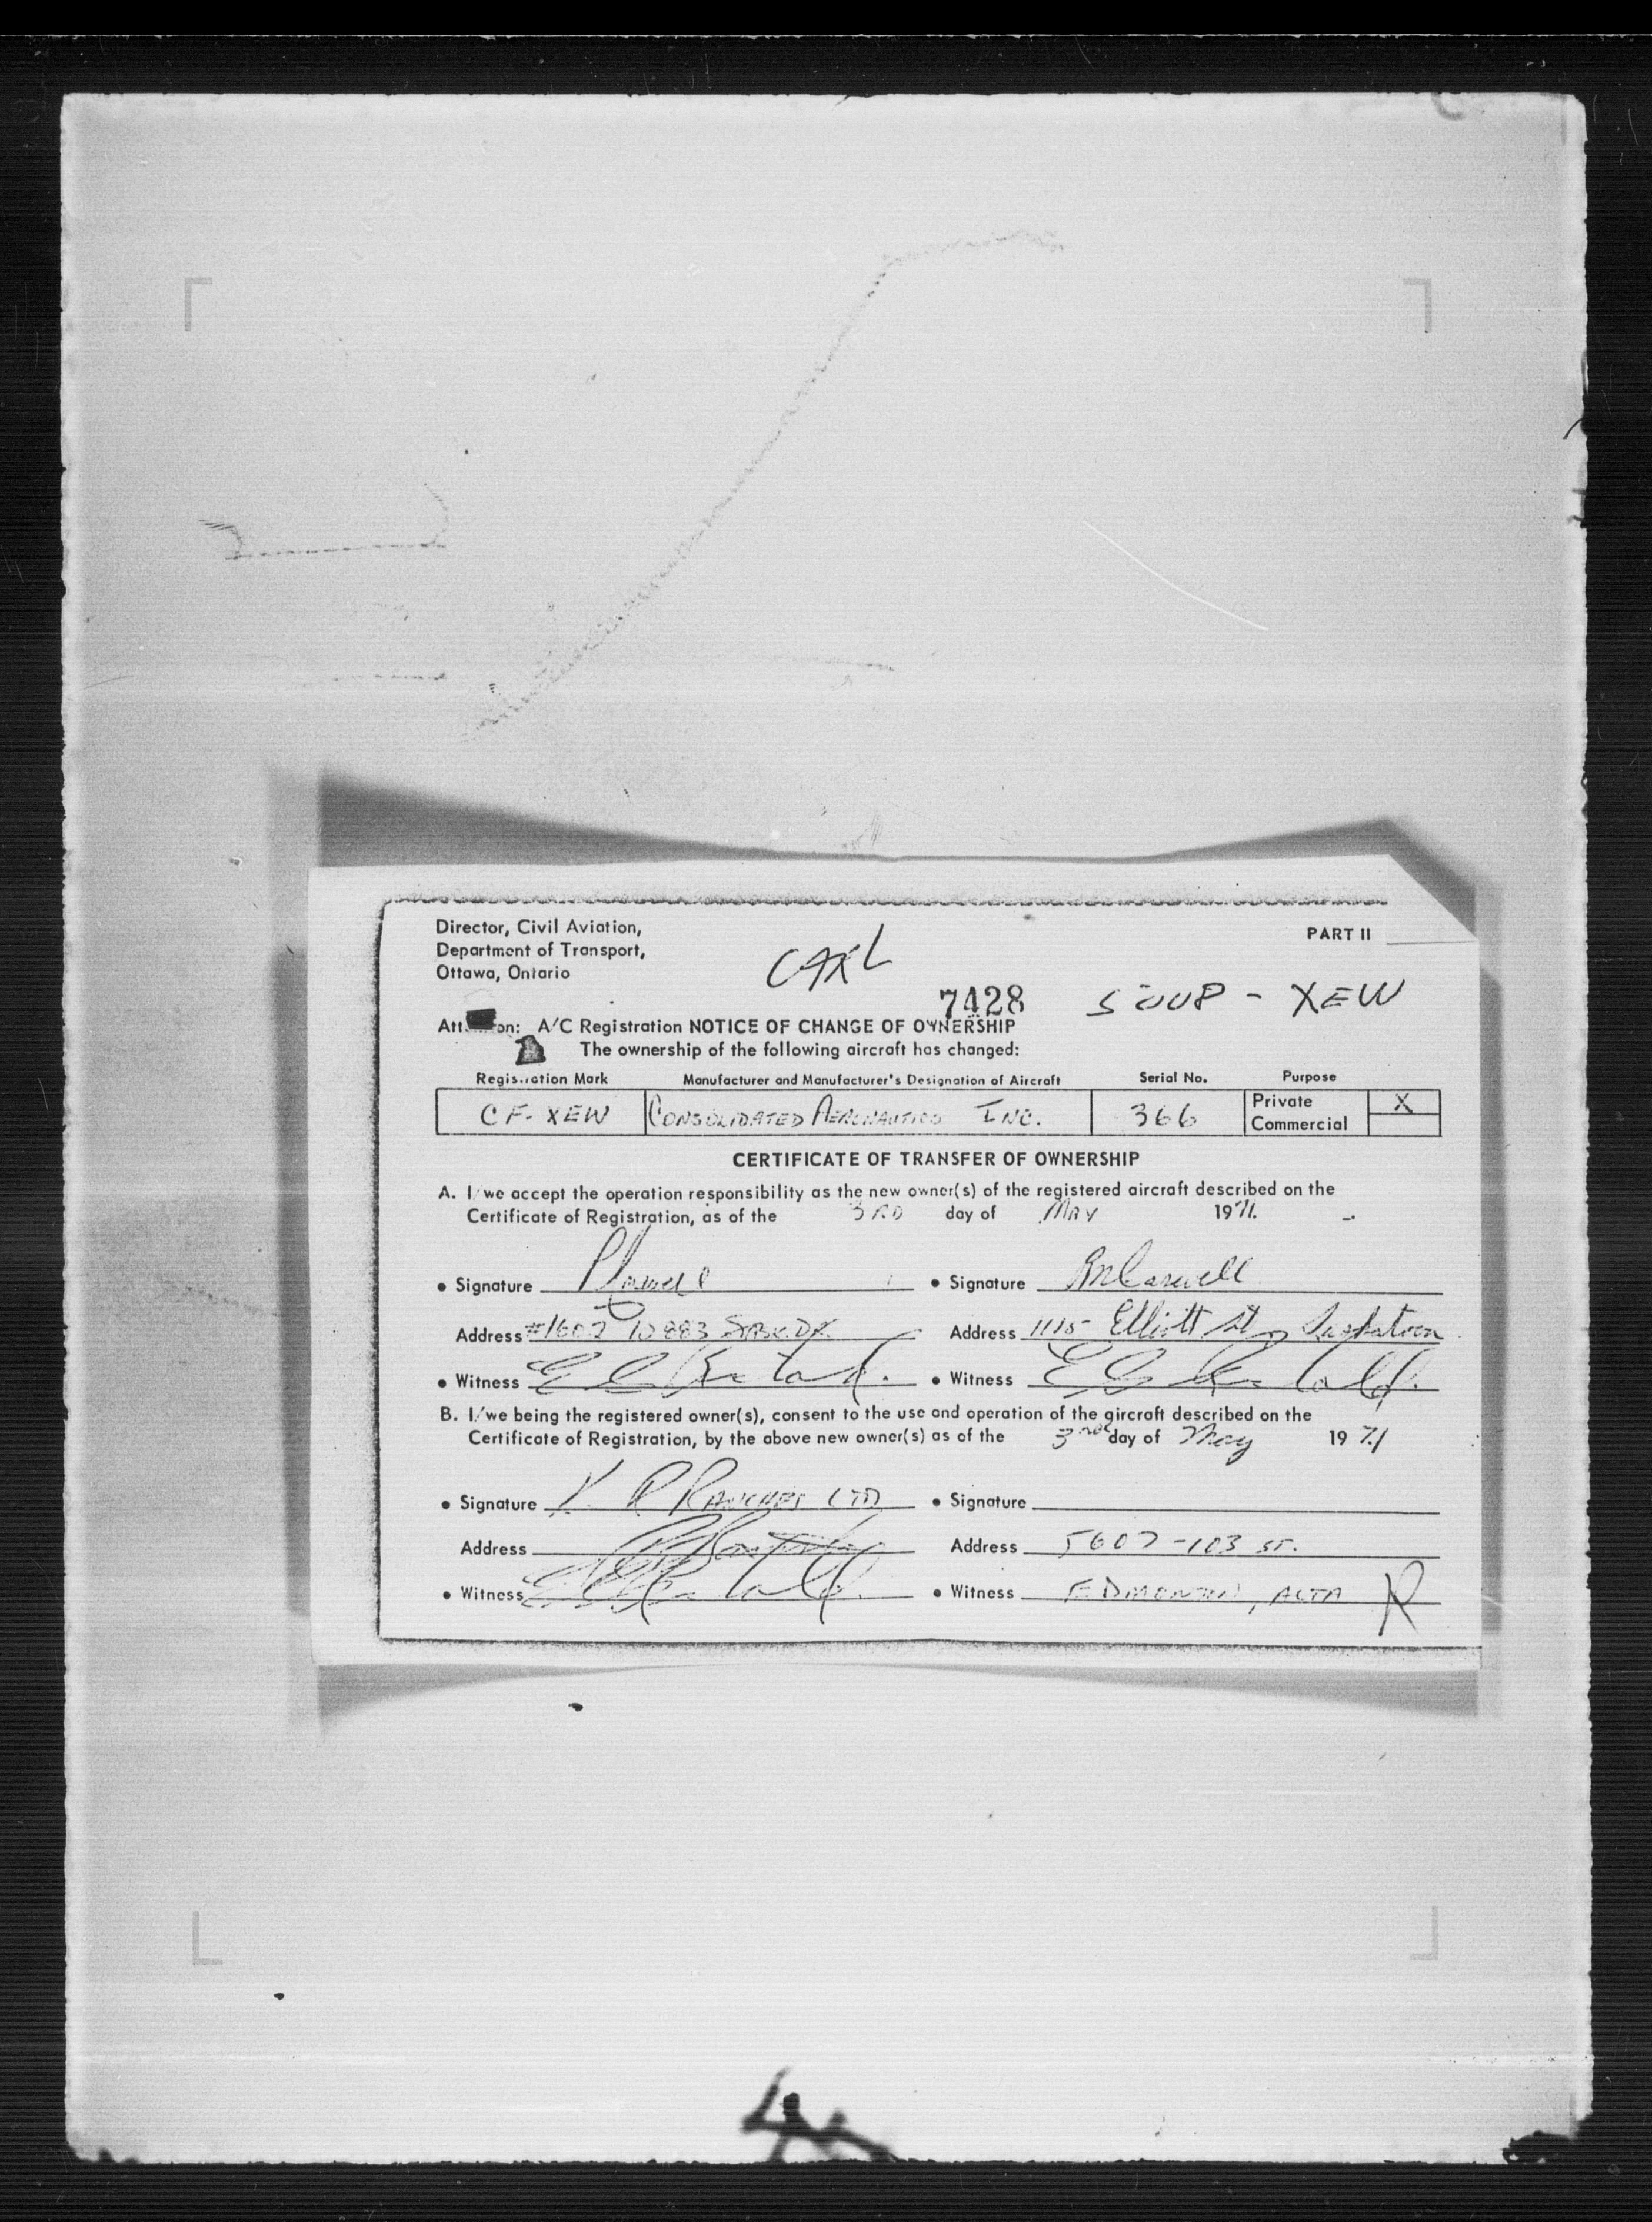 Director, Civil Aviation,
Department of Transport,
Ottawa, Ontario
PART II
7428
5008 - XEW
A/C Registration NOTICE OF CHANGE OF OWNERSHIP
The ownership of the following aircraft has changed:
Registration Mark Manufacturer and Manufacturer's Designation of Aircraft Serial No. Purpose
CF-XEW CONSOLIDATED AERONAUTICS INC. 366 Private X
Commercial
CERTIFICATE OF TRANSFER OF OWNERSHIP
A. I/we accept the operation responsibility as the new owner(s) of the registered aircraft described on the
Certificate of Registration, as of the 3RD day of MAY 1971.
• Signature • Signature
Address #1602 Address 1115 Elliott St, Saskatoon
• Witness • Witness
B. I/we being the registered owner(s), consent to the use and operation of the aircraft described on the
Certificate of Registration, by the above new owner(s) as of the 3rd day of May 1971
• Signature RANCHES LTD • Signature
Address Address 5607-103 ST.
• Witness • Witness EDMONTON, ALTA R